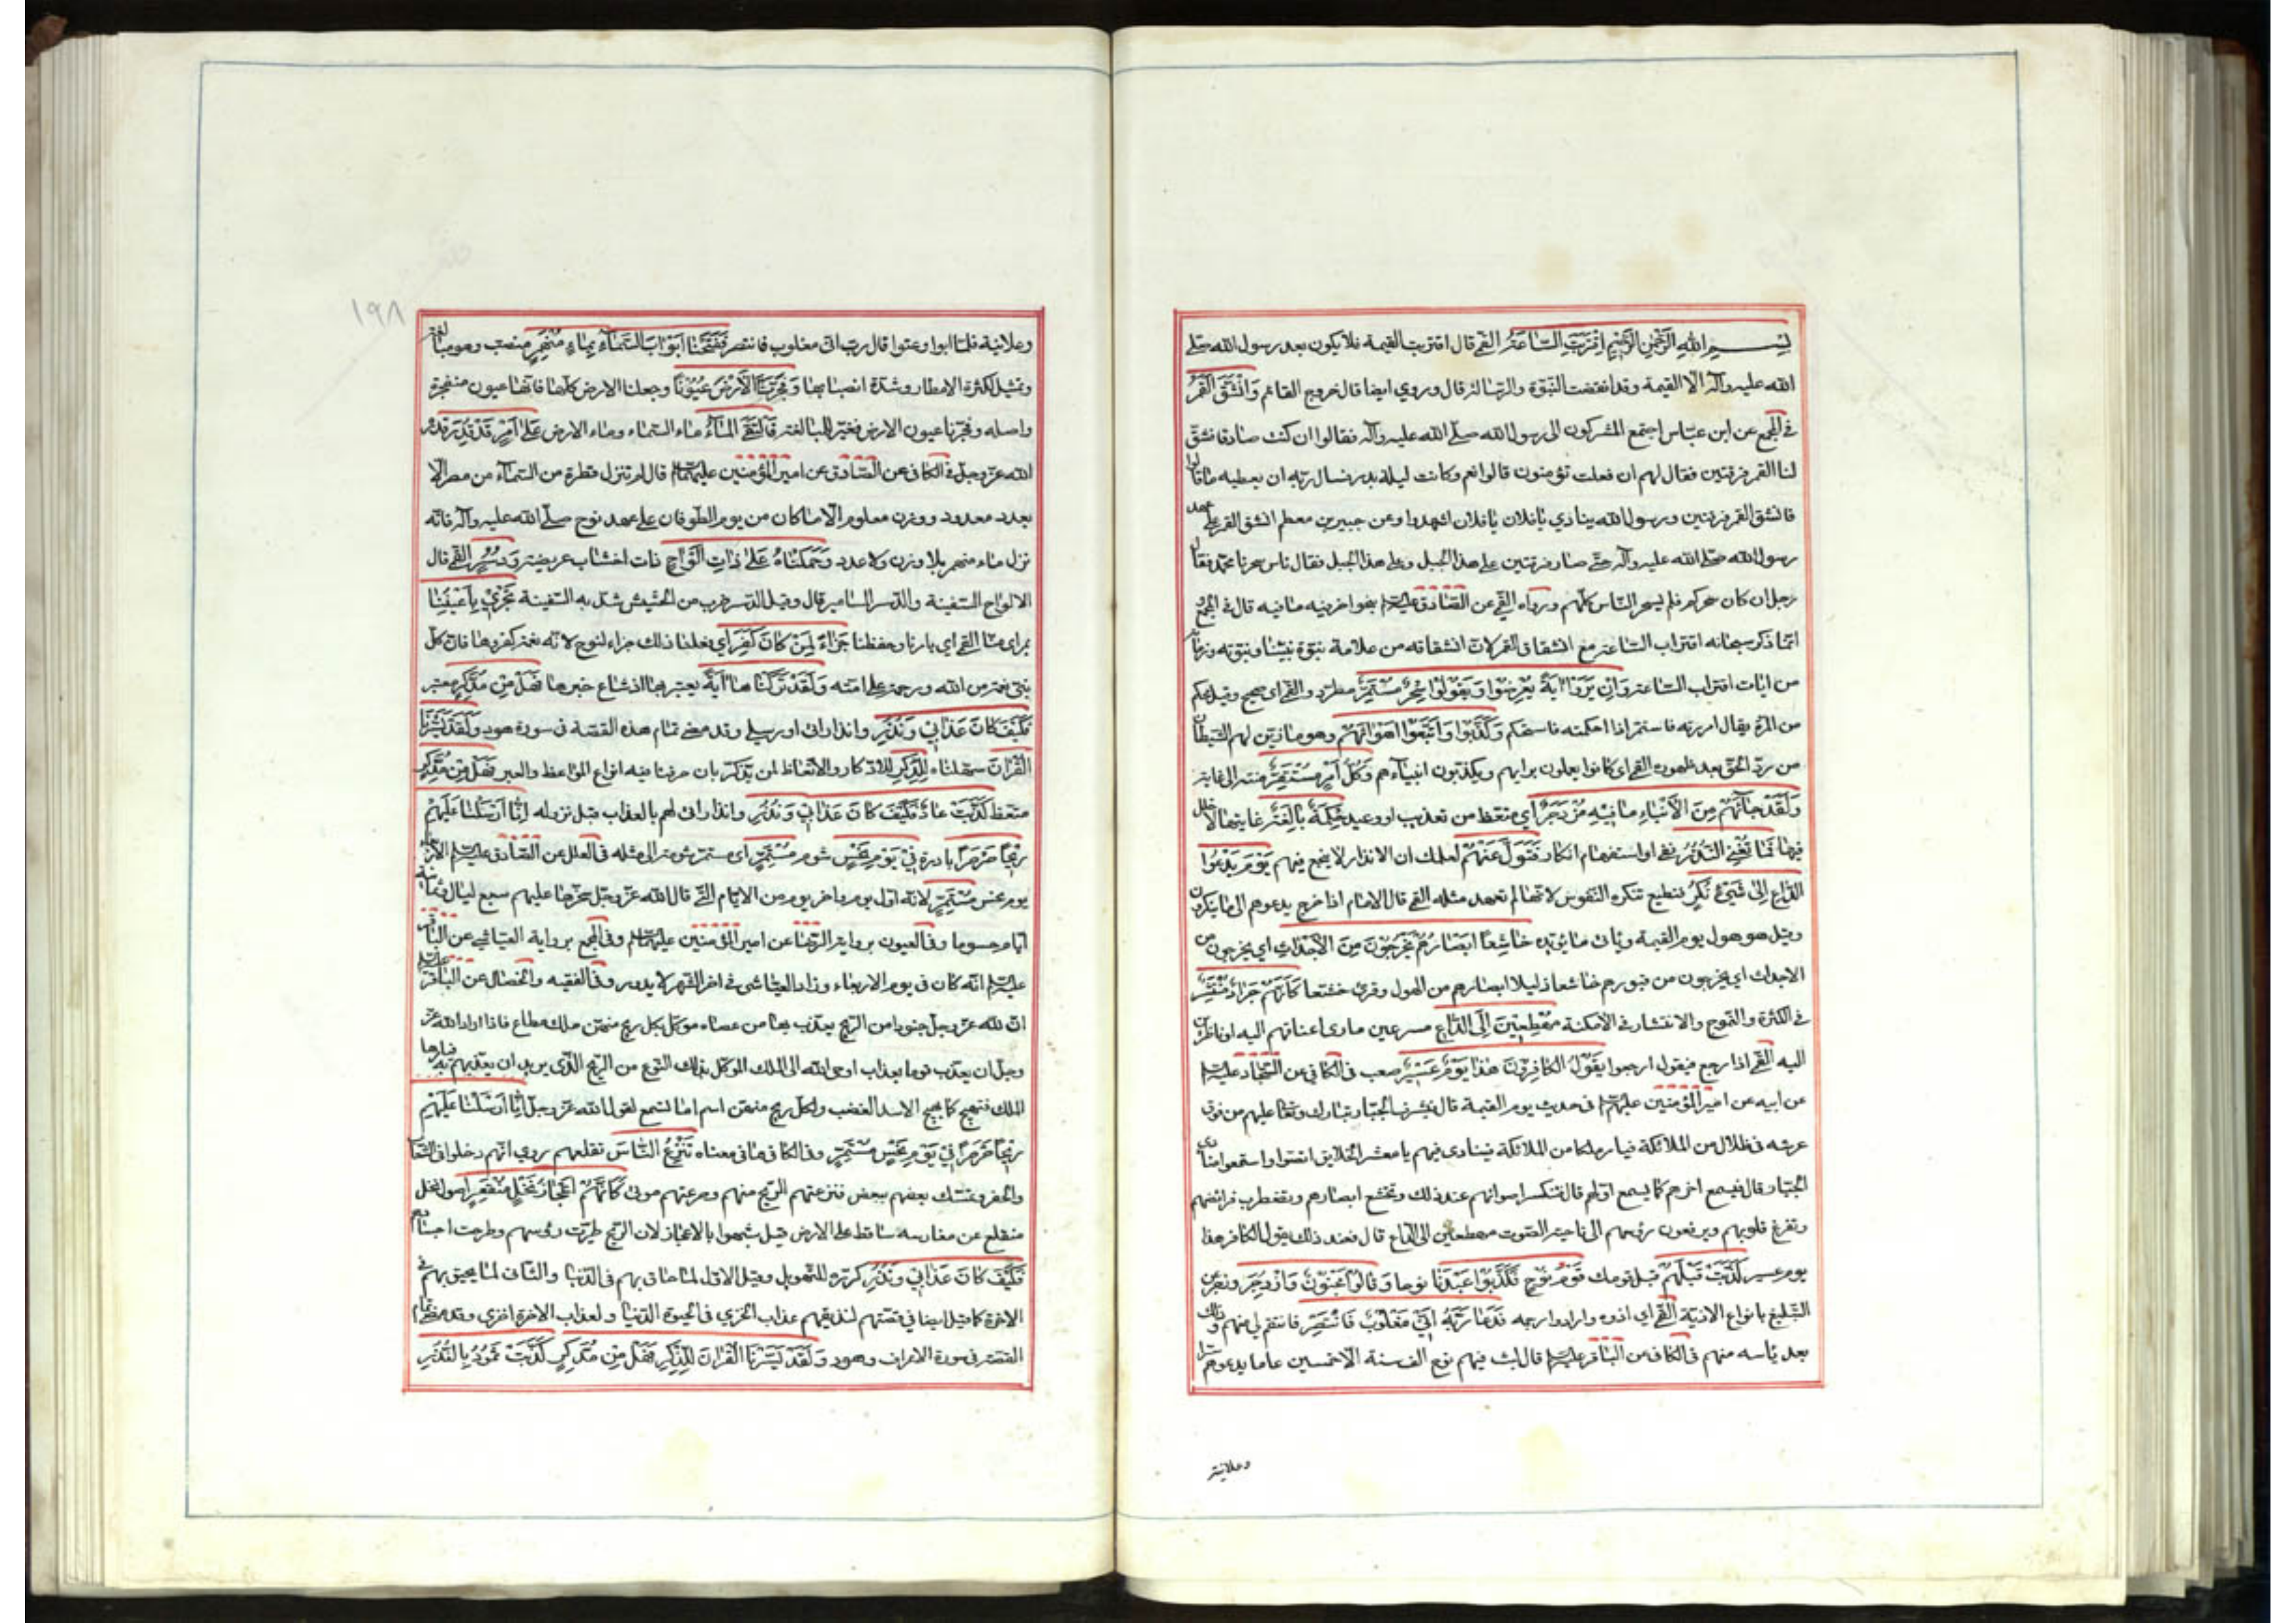 بسم الله الرحمن الرحيم اقتربت الساعة القمي قال اقتربت القيمة فلا يكون بعد رسول الله صلى
الله عليه وآله الا القيمة وقد انقضت النبوة والرسالة قال وروي ايضا قال خروج القائم وانشق القمر
في المجمع عن ابن عباس اجتمع المشركون الى رسول الله صلى الله عليه وآله فقالوا ان كنت صادقا فشق
لنا القمر فرقتين فقال لهم ان فعلت تؤمنون قالوا نعم وكانت ليلة بدر فسال ربه ان يعطيه ما قالوا
فانشق القمر فرقتين ورسول الله ينادي يا فلان يا فلان اشهدوا وعن جبير بن مطعم انشق القمر على عهد
رسول الله صلى الله عليه وآله حتى صار فرقتين على هذا الجبل وعلى هذا الجبل فقال ناس سحرنا محمد فقال
رجل ان كان سحركم فلم يسحر الناس كلهم ورواه القمي عن الصادق عليه السلم بنحو اخر فيه ما فيه قال في المجمع و
انما ذكر سبحانه اقتراب الساعة مع انشقاق القمر لان انشقاقه من علامة نبوة نبينا ونبوته وزمانه
من ايات اقتراب الساعة وان يروا اية يعرضوا ويقولوا سحر مستمر مطرد والقمي اي صحيح وقيل محكم
من المرة يقال امررته فاستمر اذا احكمته فاستحكم وكذبوا واتبعوا اهوائهم وهو ما زين لهم الشيطان
من رد الحق بعد ظهوره القمي اي كانوا يعملون برايهم ويكذبون انبياءهم وكل امر مستقر منته الى غاية
ولقد جائهم من الانباء ما فيه مزدجر اي متعظ من تعذيب او وعيد حكمة بالغة غايتها لا خلل
فيها فما تغن النذر نفي او استفهام انكار فتول عنهم لعلمك ان الانذار لا ينجع فيهم يوم يدعوا
الداع الى شيئ نكر فظيع تنكره النفوس لانها لم تعهد مثله القمي قال الامام اذا خرج يدعوهم الى ما ينكرون
وقيل هو هول يوم القيمة وياتى ما يؤيده خاشعا ابصارهم يخرجون من الاجداث اي يخرجون من
الاجداث اي يخرجون من قبورهم خاشعا ذليلا ابصارهم من الهول وقرئ خشعا كانهم جراد منتشر
في الكثرة والتموج والانتشار في الامكنة مهطعين الى الداع مسرعين مادى اعناقهم اليه او ناظرين
اليه القمي اذا رجع فيقول ارجعوا يقول الكافرون هذا يوم عسر صعب في الكافي عن السجاد عليه السلم
عن ابيه عن امير المؤمنين عليهم السلم في حديث يوم القيمة قال فيشرف الجبار تبارك وتعا عليهم من فوق
عرشه في ظلال من الملائكة فيامر ملكا من الملائكة فينادى فيهم يا معشر الخلايق انصتوا واستمعوا منادى
الجبار قال فيسمع اخرهم كما يسمع اولهم قال فتنكسر اصواتهم عند ذلك وتخشع ابصارهم وتضطرب فرائصهم
وتفزع قلوبهم ويرفعون رؤسهم الى ناحية الصوت مهطعين الى الداع قال فعند ذلك يقول الكافر هذا
يوم عسر كذبت قبلهم قبل قومك قوم نوح فكذبوا عبدنا نوحا وقالوا مجنون وازدجر وزجر عن
التبليغ بانواع الاذية القمي اي اذوه وارادوا رجمه فدعا ربه اني مغلوب فانتصر فانتقم لي منهم وذلك
بعد ياسه منهم في الكافي عن الباقر عليه السلم قال لبث فيهم نوح الف سنة الا خمسين عاما يدعوهم سرا
وعلانية
١٩٨
وعلانية فلما ابوا وعتوا قال رب انى مغلوب فانتصر ففتحنا ابواب السماء بماء منهمر منصب وهو مبالغة
وتمثيل لكثرة الامطار وشدة انصبابها وفجرنا الارض عيونا وجعلنا الارض كلها كانها عيون منفجرة
واصله وفجرنا عيون الارض فغير للمبالغة فالتقى الماء ماء السماء وماء الارض على امر قد قدر قدره
الله عز وجل في الكافي عن الصادق عن امير المؤمنين عليهما السلم قال لم تنزل قطرة من السماء من مطر الا
بعدد معدود ووزن معلوم الا ما كان من يوم الطوفان على عهد نوح صلى الله عليه وآله فانه
نزل ماء منهمر بلا وزن ولا عدد وحملناه على ذات الواح ذات اخشاب عريضة ودسر القمي قال
الالواح السفينة والدسر المسامير قال وقيل الدسر ضرب من الحشيش شد به السفينة تجري باعيننا
بمراى منا القمي اي بامرنا وحفظنا جزاء لمن كان كفر اي فعلنا ذلك جزاء لنوح لانه نعمة كفروها فان كل
نبي نعمة من الله ورحمة على امته ولقد تركناها اية يعتبر بها اذ شاع خبرها فهل من مدكر معتبر
فكيف كان عذابي ونذر وانذاراتى او رسلي وقد مضى تمام هذه القصة في سورة هود ولقد يسرنا
القران سهلناه للذكر للاذكار والاتعاظ لمن يتذكر بان صرفنا فيه انواع المواعظ والعبر فهل من مدكر
متعظ كذبت عاد فكيف كان عذابي ونذر وانذاراتى لهم بالعذاب قبل نزوله انا ارسلنا عليهم
ريحا صرصرا باردة في يوم نحس شوم مستمر اي استمر شومه الى مثله في العلل عن الصادق عليه السلم الاربعاء
يوم نحس مستمر لانه اول يوم واخر يوم من الايام التي قال الله عز وجل سخرها عليهم سبع ليال وثمانية
ايام حسوما وفي العيون برواية الرضا عن امير المؤمنين عليهما السلم وفي المجمع برواية العياشي عن الباقر
عليه السلم انه كان في يوم الاربعاء وزاد العياشى في اخر الشهر لا يدور وفي الفقيه والخصال عن الباقر عليه السلم
ان لله عز وجل جنودا من الريح يعذب بها من عصاه موكل بكل ريح منهن ملك مطاع فاذا اراد الله عز
وجل ان يعذب قوما بعذاب اوحى الله الى الملك الموكل بذلك النوع من الريح الذى يريد ان يعذبهم به فيامرها
الملك فتهيج كما يهيج الاسد المغضب ولكل ريح منهن اسم اما تسمع لقول الله عز وجل انا ارسلنا عليهم
ريحا صرصرا في يوم نحس مستمر وفي الكافي ما في معناه تنزع الناس تقلعهم روي انهم دخلوا في الشعاب
والحفر وتمسك بعضهم ببعض فنزعتهم الريح منهم وصرعتهم موتى كانهم اعجاز نخل منقعر اصول نخل
منقلع عن مغارسه ساقط على الارض قيل شبهوا بالاعجاز لان الريح طيرت رؤسهم وطرحت اجسادهم
فكيف كان عذابي ونذر كرره للتهويل وقيل الاول لما حاق بهم في الدنيا والثانى لما يحيق بهم في
الاخرة كما قيل ايضا في قصتهم لنذيقهم عذاب الخزي في الحيوة الدنيا ولعذاب الاخرة اخزى وقد مضى تمام
القصة في سورة الاعراف وهود ولقد يسرنا القران للذكر فهل من مدكر كذبت ثمود بالنذر